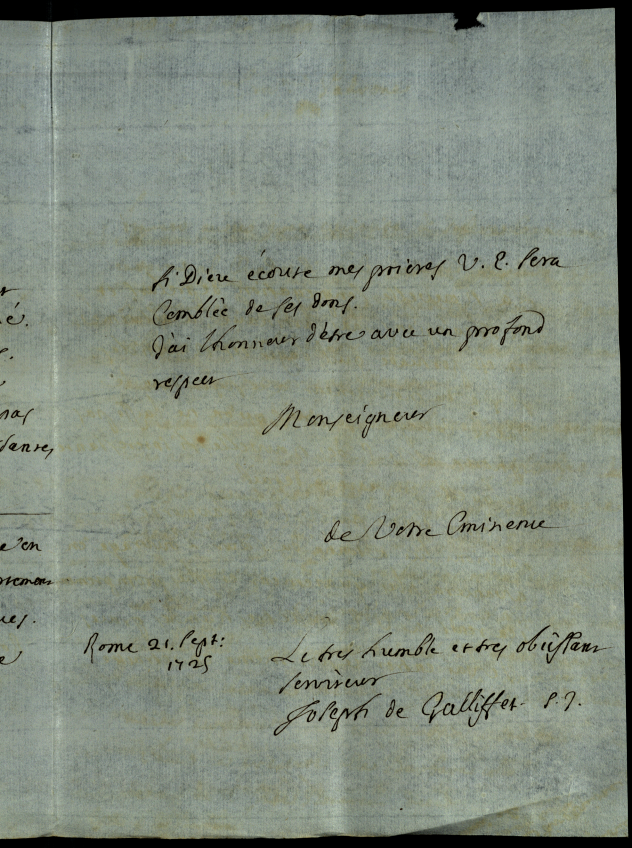 si Dieu écoute mes prieres V. E. sera
Comblée de ses dons.
J'ai l'honneur d'estre avec un profond
respect
Monseigneur
de Votre Eminence
Rome 21. sept:
1725
Le tres humble et tres obéissant
serviteur
Joseph de Galliffet S. J.
é.
pas
ues.